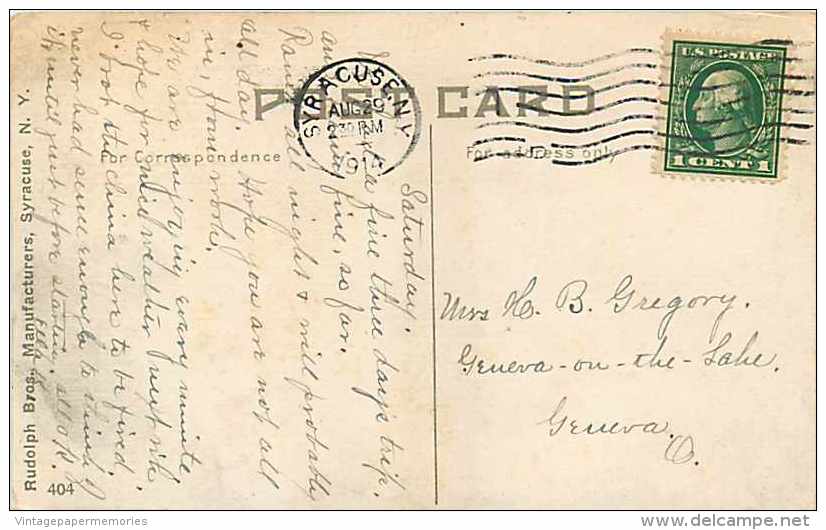 POST CARD
For Correspondence
For address only
SYRACUSE, N.Y.
AUG 29
2 30 PM
1914
U.S. POSTAGE
1 CENT 1
Saturday.
a fine three days trip.
fine, so far.
all night & will probably
all day. Hope you are not all
in, from work.
We are enjoying every minute
& hope for nice weather next wk.
I took the china here to be fired.
never had sense enough to think of
it until just before startin. all O.K.
Mrs H. B. Gregory.
Geneva-on-the-Lake.
Geneva.
O.
Rudolph Bros., Manufacturers, Syracuse, N. Y.
404
Vintagepapermemories
delcampe.net